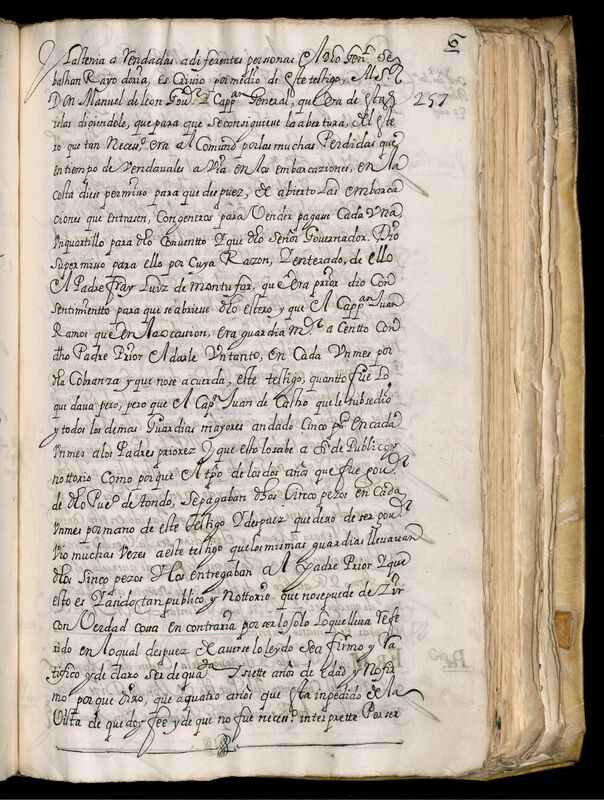 6
257
la tenia a Vendadas a diferentes personas el dho Gen.l Se
bastian Rayo doria, es Crivio por medio de este testigo, Al S.r
Don Manuel de leon Gov.or y Capp.an General, que era de estas
islas diciendole, que para que se consiguiese la abertura, del este
ro que tan neces.o era al Comun por las muchas Perdidas que
en tiempo de Vendavales a Via en las embarcaciones, en la
costa diese permiso para que despuez, de abierto las embarca
ciones que entrasen, Con generos para Vender pagase Cada Vna
Vn quartillo para dho Conuentto y que dho Señor Governador. Dio
su permiso para ello por Cuya Razon, y enterado, de ello
el Padre fray Luiz de Montufar, que era prior dio Con
sentimentto para que se abriese dho estero y que el Capp.an Juan
Ramos que en la occasion, era guardia M.r a Centto Con
dho Padre Prior el darle Vn tanto, en Cada Vn mes por
dha Cobranza y que no se acuerda, este testigo, quanto fue Lo
que daua pero, pero que el Cap.n Juan de Castro que le subsedio
y todos los demas Guardias mayores an dado Cinco p.os en cada
Vn mes a los Padres priorez Y que esto lo sabe a S de Publico y
nottorio Como por que el tpo de los dos años que fue gou.or
de dho Pue.o de tondo, se pagaban dhos Cinco pezos en Cada
Vn mes por mano de este testigo Y despuez que dexo de ser gou.or
Vio muchas Vezes a este testigo que los mismas guardias lleuauan
dhos Sinco pezos Y los entregaban al Padre Prior Y que
esto es tan publico y Nottorio que no se puede de Zir
con Verdad cosa en contrario por ser lo solo lo que lleua refe
rido en lo qual despuez de auerse lo leydo se a firmo y Ra
tifico y de claro ser de qua Y siette años de edad y no fir
mo porque dixo, que a quatro años que esta inpedido de la
Vista de que doy fee y de que no fue neces.o interprette Por ser